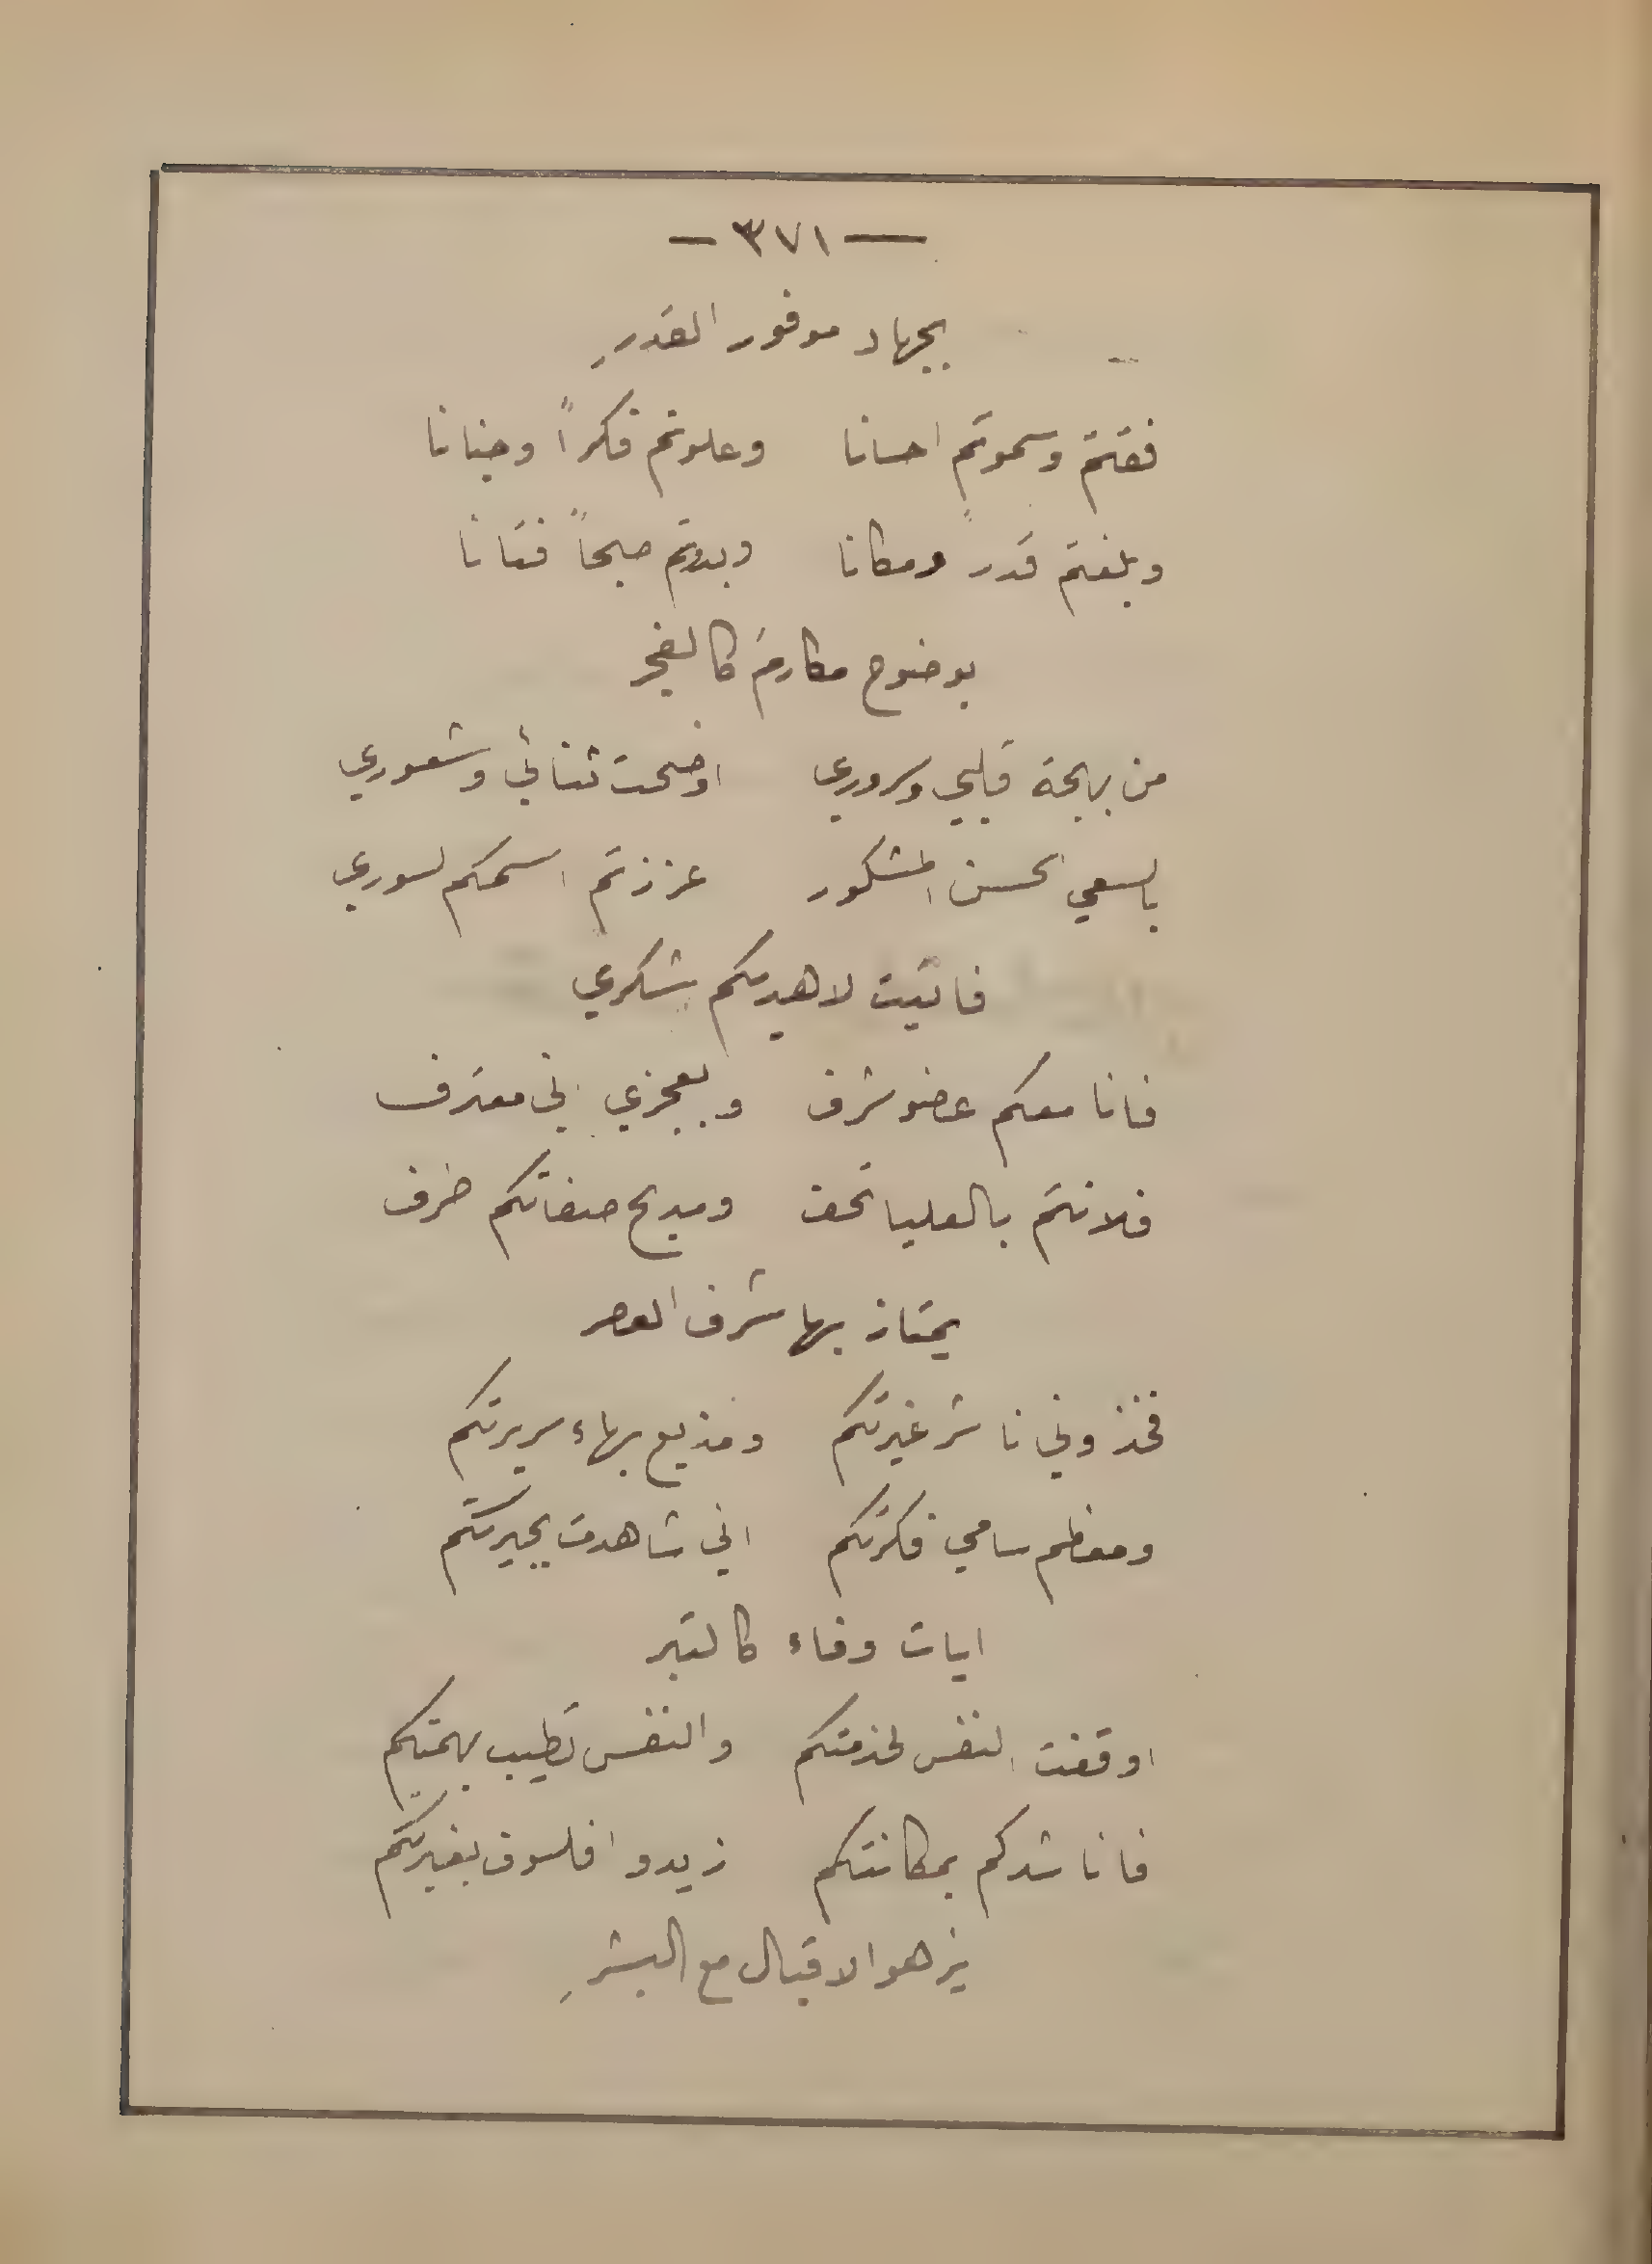 — ٣٧١ —
بجهاد موفور القدرِ
فقتم وسموتم احسانا وعلوتم فكراً وجنانا
وبلغتم قدرً ومكانا وبدوتم صبحاً فتانا
بوضوح مكارم كالفجر
من بهجة قلبي وسروري اوضحت ثنائي وشعوري
بالسعي الحسن المشكور عززتم اسمكم لسوري
فاتيت لاهديكم شكري
فانا معكم عضو شرف وبعجزي اني معترف
فلانتم بالعليا تحف ومديح صفاتكم طرف
يمتاز بها شرف العصر
فخذوني ناشر غيرتكم ومذيع بهاء سريرتكم
ومعظم سامي فكرتكم اني شاهدت بجيرتكم
ايات وفاء كالتبر
اوقفت النفس لخدمتكم والنفس تطيب بهمتكم
فاناشدكم بمكانتكم زيدوا فلسوف بغيرتكم
يزهو الاقبال مع البشرِ